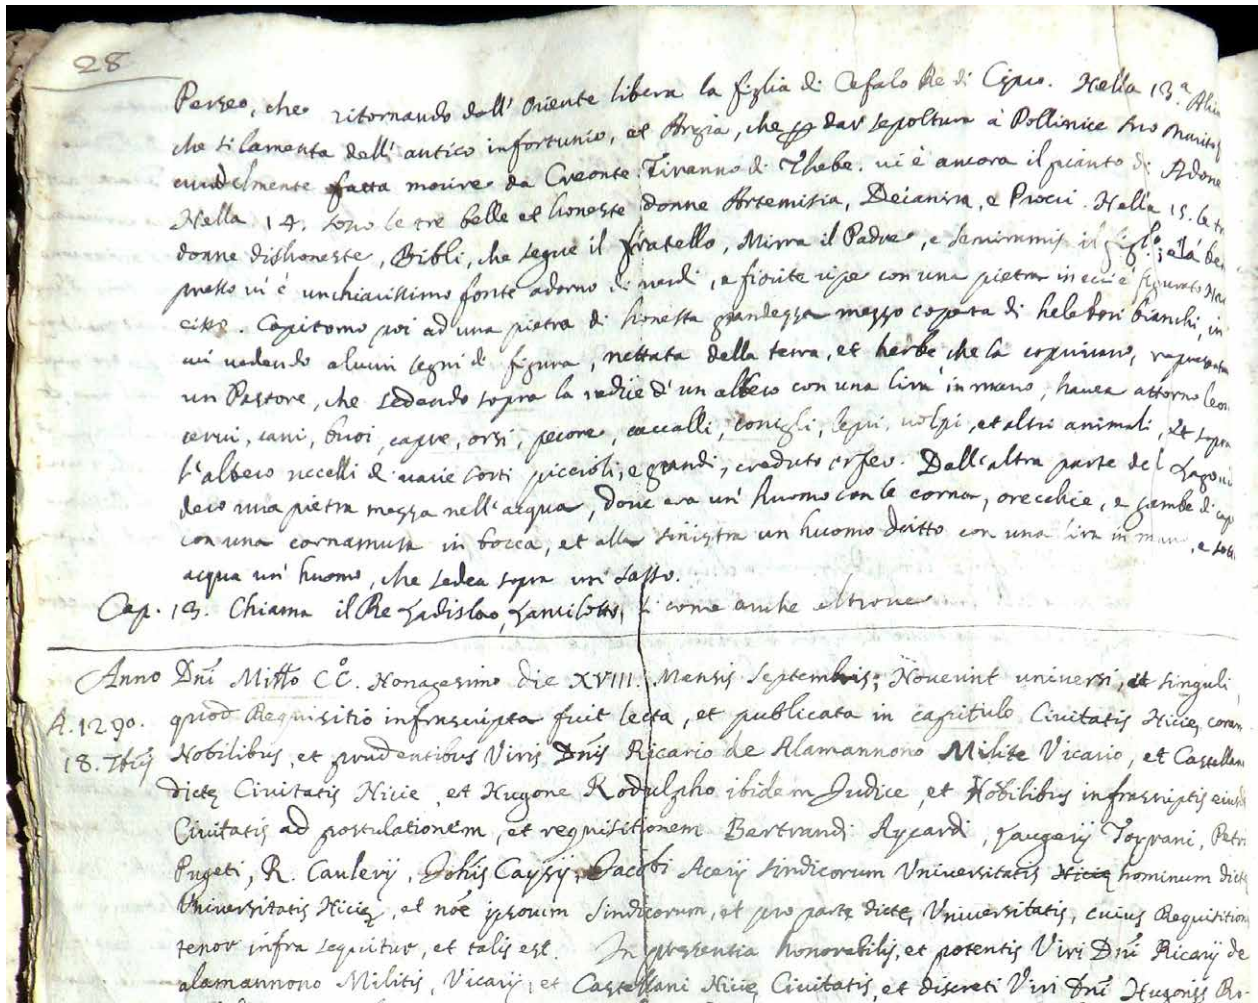 28
Perseo, che ritornando dall' Oriente libera la figlia di Cefalo Re di Cipro. Nella 13.a
che si lamenta dell' antico infortunio, et Argia, che p dar sepoltura à Pollinice suo marito
crudelmente fatta morire da Creonte Tiranno di Thebe. vi è ancora il pianto di Adone
Nella 14. sono le tre belle et honeste donne Artemisia, Deianira, e Procri. Nella 15. le tre
donne dishoneste, Bibli, che segue il fratello, Mirra il Padre, e Semiramis il figlo; e là
presso vi è un chiarissimo fonte adorno di verdi, e fiorite ripe con una pietra in cui è figurato Nar
cisso. Capitomo poi ad una pietra di honesta grandezza mezzo coperta di hellebori bianchi, in
cui vedendo alcuni segni di figura, nettata della terra, et herbe che la coprivano, rapresenta
un Pastore, che sedendo sopra la radice d' un albero con una lira in mano, havea attorno leoni
cervi, cani, buoi, capre, orsi, pecore, cavalli, conigli, lepri, volpi, et altri animali, et sopra
l'albero uccelli di varie sorti piccioli, e grandi, creduto orfeo. Dall'altra parte del Lago vi
dero una pietra mezza nell'acqua, dove era un' huomo con le corna, orecchie, e gambe di cap
con una cornamusa in bocca, et alla sinistra un huomo dritto con una lira in mano, e sotto
acqua un' huomo, che sedea sopra un sasso.
Cap. 13. Chiama il Re Ladislao, Lanciloto, si come anche altrove
Anno Dni Millo CC. Nonagesimo die XVIII. Mensis Septembris; Noverint universi, et singuli,
A. 1290. quod Requisitio infrascripta fuit lecta, et publicata in capitulo Civitatis Nicię, coram
18. 7bris Nobilibus, et prudentibus Viris Dnis Ricario de Alamannono Milite Vicario, et Castellano
dictę Civitatis Nicię, et Hugone Rodulpho ibidem Judice, et Nobilibus infrascriptis eiusd
Civitatis ad postulationem, et requisitionem Bertrandi Aycardi, Laugerij Torrani, Petri
Pugeti, R. Caulerij, Johis Cayssij, Jacobi Acerij Sindicorum Universitatis Nicię hominum dictę
Universitatis Nicię, et noe ipsorum Sindicorum, et pro parte dictę Universitatis, cuius Requisitionis
tenor infra sequitur, et talis est. In presentia honorabilis, et potentis Viri Dni Ricarij de
alamannono Militis, Vicarij, et Castellani Nicię Civitatis, et discreti Viri Dni Hugonis Ro-